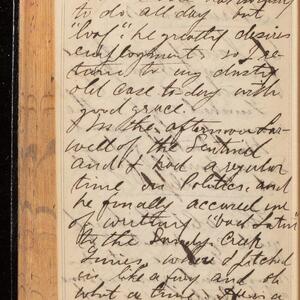 to do all day but
"loaf": he greatly desires
employment, so I re-
turn to my dusty
old case to-day with
good grace.
In the afternoon Far-
well of the Sentinel
and I had a regular
time on Politics, and
he finally accused me
of writing "bad Latin"
to the Sandy Creek
Times, where I pitched
in like a fury and oh
what a time.